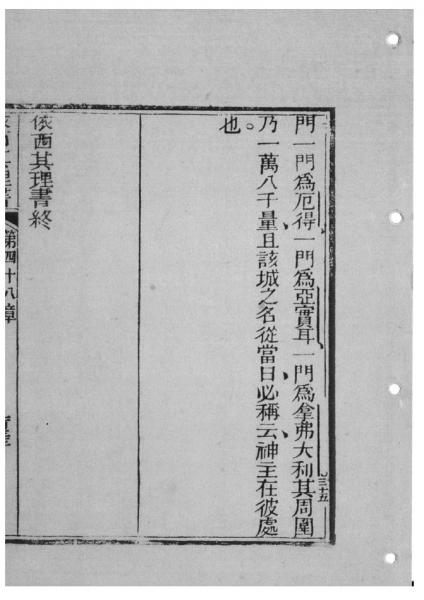 門一門為厄得一門為亞實耳一門為拿弗大利其周圍
三十五
乃一萬八千量且該城之名從當日必稱云神主在彼處
也。
依西其理書終
第四十八章